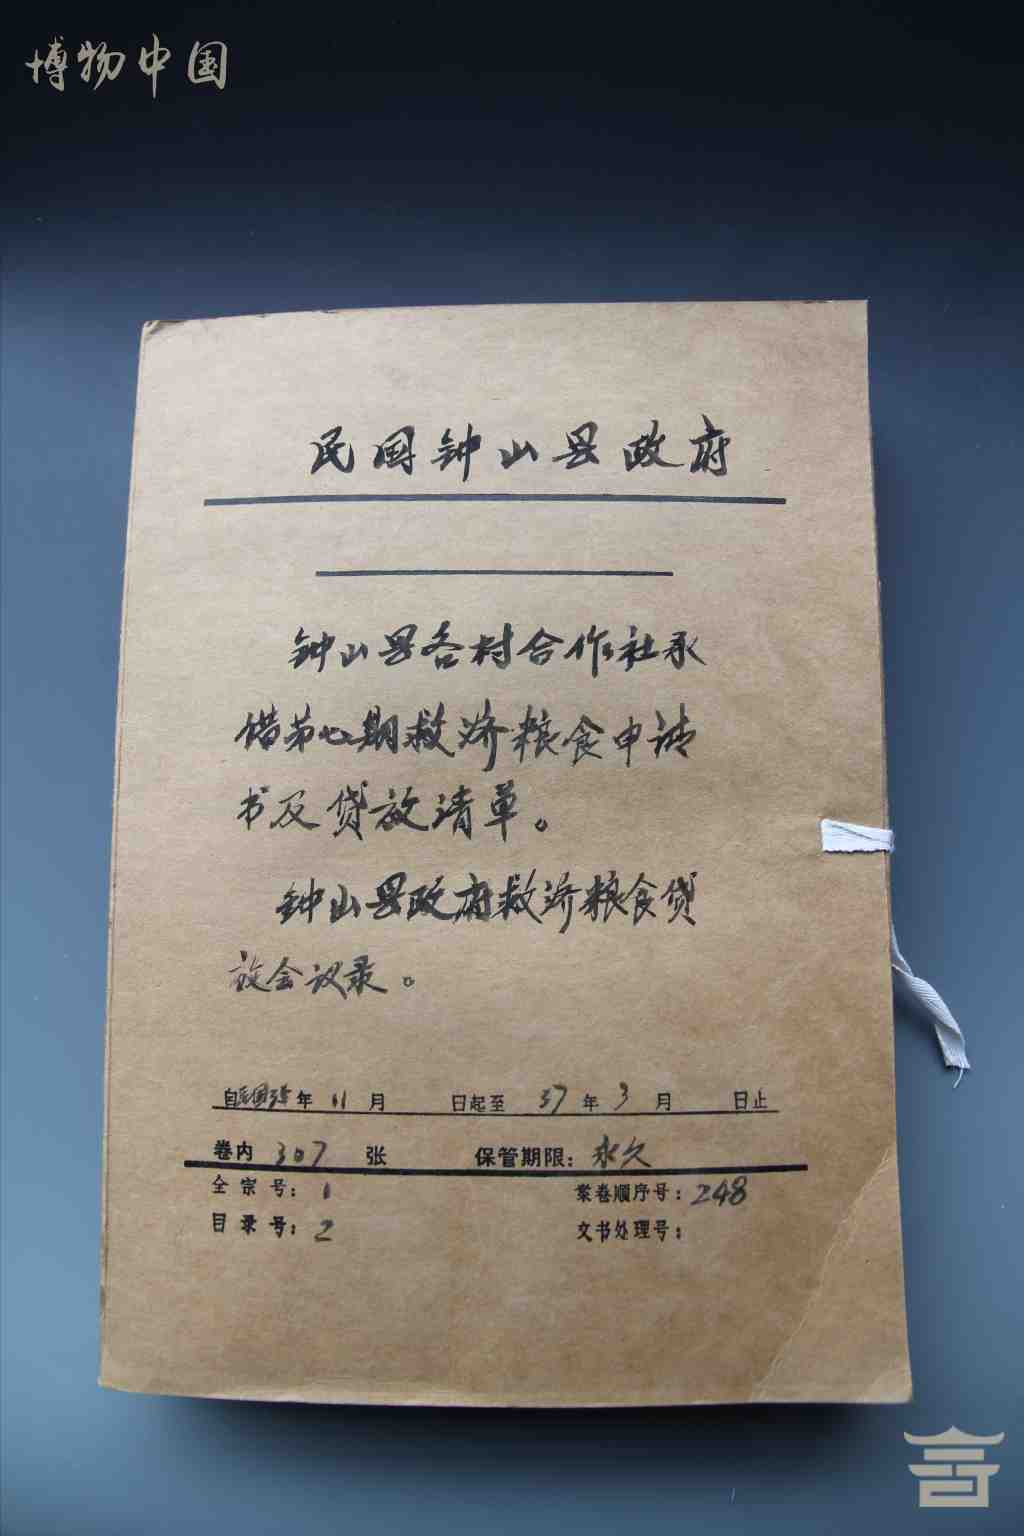 博物中国
民国钟山县政府
钟山县各村合作社承
借第七期救济粮食申请
书及贷放清单。
钟山县政府救济粮食贷
放会议录。
自民国 年 11 月 日起至 37 年 3 月 日止
卷内 307 张 保管期限：永久
全宗号：1 案卷顺序号：248
目录号：2 文书处理号：